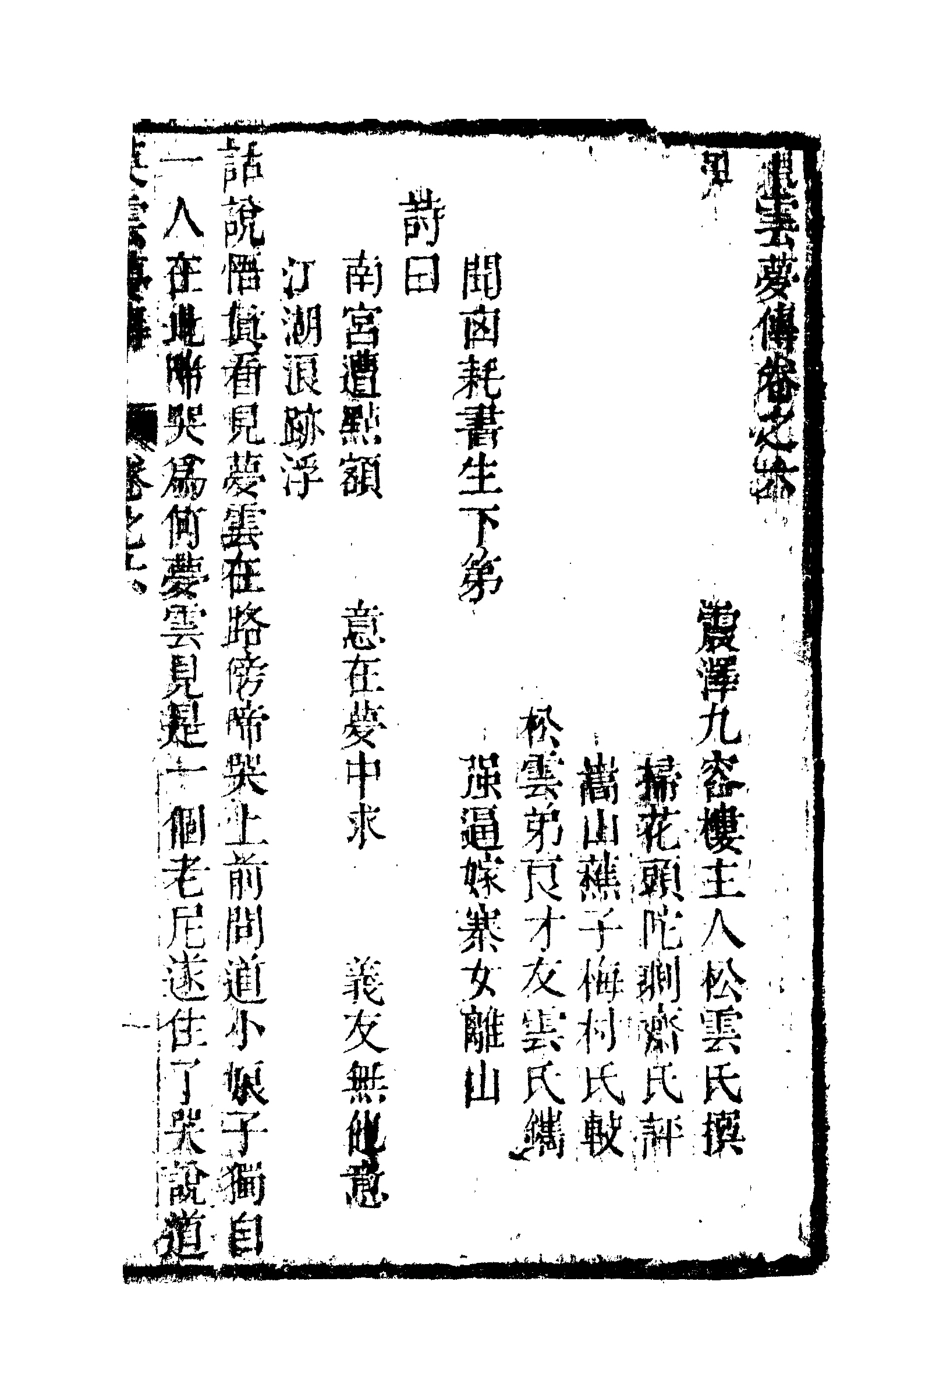 雲夢傳卷之六
震澤九容樓主人松雲氏撰
掃花頭陀剩齋氏評
嵩山蕉子梅村氏較
松雲弟良才友雲氏鐫
聞凶耗書生下第 強逼嫁寨女離山
詩曰
南宮遭點額 意在夢中求 義友無他意
江湖浪跡浮
話說悟真看見夢雲在路傍啼哭上前問道小娘子獨自
一人在此啼哭爲何夢雲見是一個老尼遂住了哭說道
英雲夢傳 卷之六